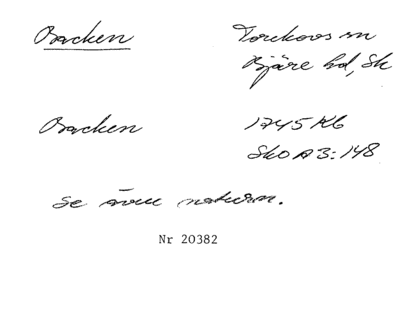 Backen Torekovs sn
Bjäre hd, Sk
Backen 1745 Kb
Sko A3:148
Se även naturn.
Nr 20382